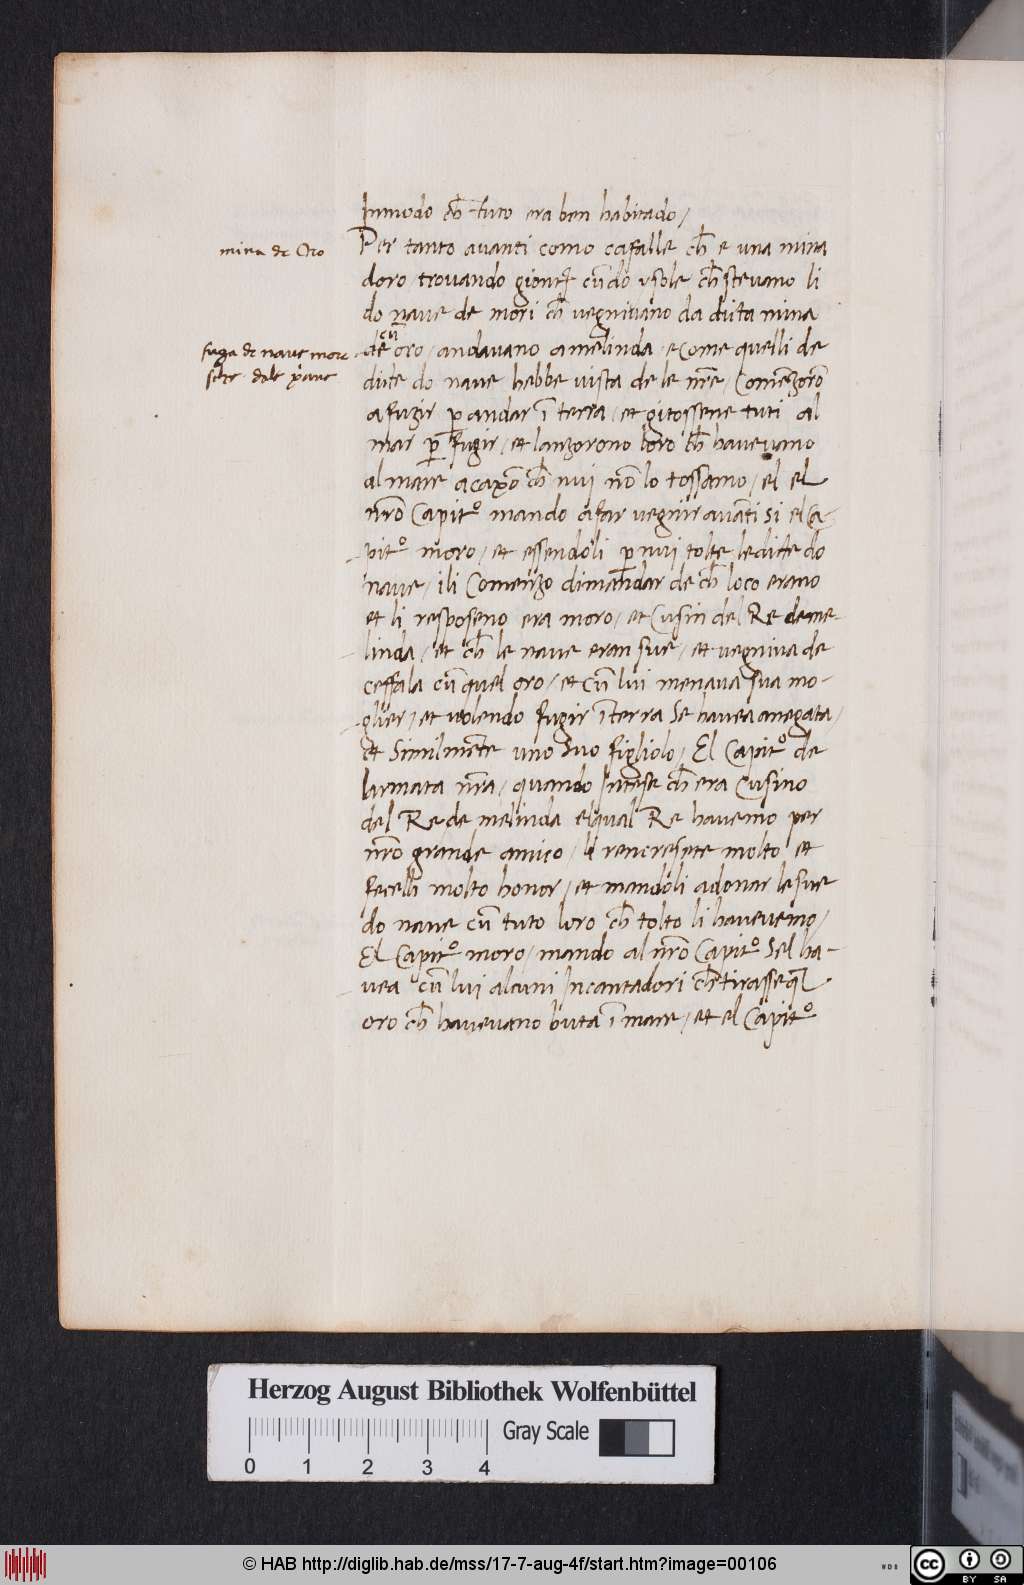 Inmodo ch̄ tuto era ben habitado /
mina de Oro
Per tanto avanti como cafalle ch̄ e una mina
doro trovando gionti cū do ysole ch̄ stevano li
do nave de mori ch̄ vegnivano da dicta mina
cū
fuga de nave more
de oro / andavano a melinda · e come quelli de
dicte do nave hebbe vista de le nr̄e / Comēzorō
a fugir p andar ī terra / et gitossene tuti al
mar p fugir / et lanzorono loro ch̄ havevano
al mare acaxō ch̄ nui nō lo tossamo / el el
nr̄o Capito mando a far vegnir avāti si el Ca-
pito moro / et essendoli p nui tolte le dicte do
nave / ili Comenzo dimandar de ch̄ loco erano
et li resposeno era moro / et Cusin del Re deme-
linda / et ch̄ le nave eran sue / et vegniva de
ceffala cū quel oro / et cū lui menava sua mo-
glier / et volendo fugir ī terra se havea anegata /
et Similmēte uno suo figliolo / El Capito de
larmata nr̄a / quando Intese ch̄ era Cusino
del Re de melinda elqual Re havemo per
nr̄o grande amico / li rencresete molto et
fecelli molto honor / et mandoli a donar le sue
do nave cū tuto loro ch̄ tolto li havevemo /
El Capito moro / mando al nr̄o Capito Sel ha-
vea cū lui alcuni Incantadori ch̄ tirasse ql
oro ch̄ havevano buta ī mare / et el Capito
Herzog August Bibliothek Wolfenbüttel
Gray Scale
0 1 2 3 4
© HAB http://diglib.hab.de/mss/17-7-aug-4f/start.htm?image=00106
cc BY SA